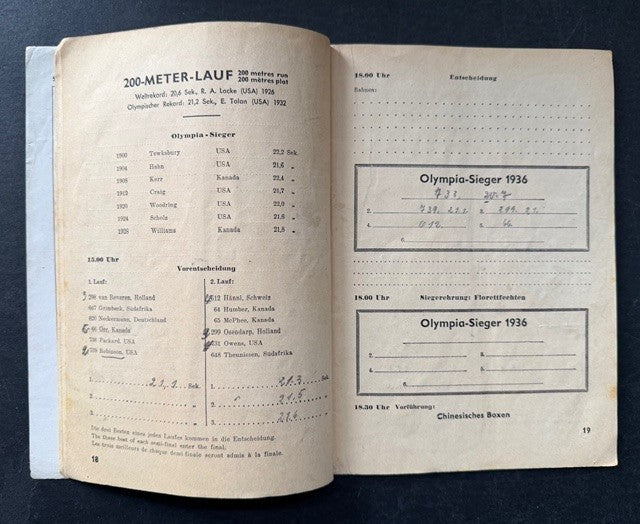 200-METER-LAUF 200 metres run
200 mètres plat
Weltrekord: 20,6 Sek., R. A. Locke (USA) 1926
Olympischer Rekord: 21,2 Sek., E. Tolan (USA) 1932
Olympia-Sieger
1900 Tewksbury USA 22,2 Sek.
1904 Hahn USA 21,6 „
1908 Kerr Kanada 22,4 „
1912 Craig USA 21,7 „
1920 Woodring USA 22,0 „
1924 Scholz USA 21,6 „
1928 Williams Kanada 21,8 „
15.00 Uhr
Vorentscheidung
1. Lauf:
3 298 van Beveren, Holland
667 Grimbeek, Südafrika
620 Neckermann, Deutschland
66 Orr, Kanada
736 Packard, USA
739 Robinson, USA
1. 21,1 Sek.
2.
3.
2. Lauf:
612 Hänni, Schweiz
64 Humber, Kanada
65 McPhee, Kanada
299 Osendarp, Holland
Owens, USA
648 Theunissen, Südafrika
1. 21.3 Sek.
2. „ 21.5 „
3. 21.6 „
Die drei Besten eines jeden Laufes kommen in die Entscheidung.
The three best of each semi-final enter the final.
Les trois meilleurs de chaque demi finale seront admis à la finale.
18
18.00 Uhr Entscheidung
Bahnen:
Olympia-Sieger 1936
733. 20.7
2. 739. 21.1 3. 21.
4. 612. 5. 66.
6.
18.00 Uhr Siegerehrung: Florettfechten
Olympia-Sieger 1936
2. 3.
4. 5.
6.
18.30 Uhr Vorführung:
Chinesisches Boxen
19